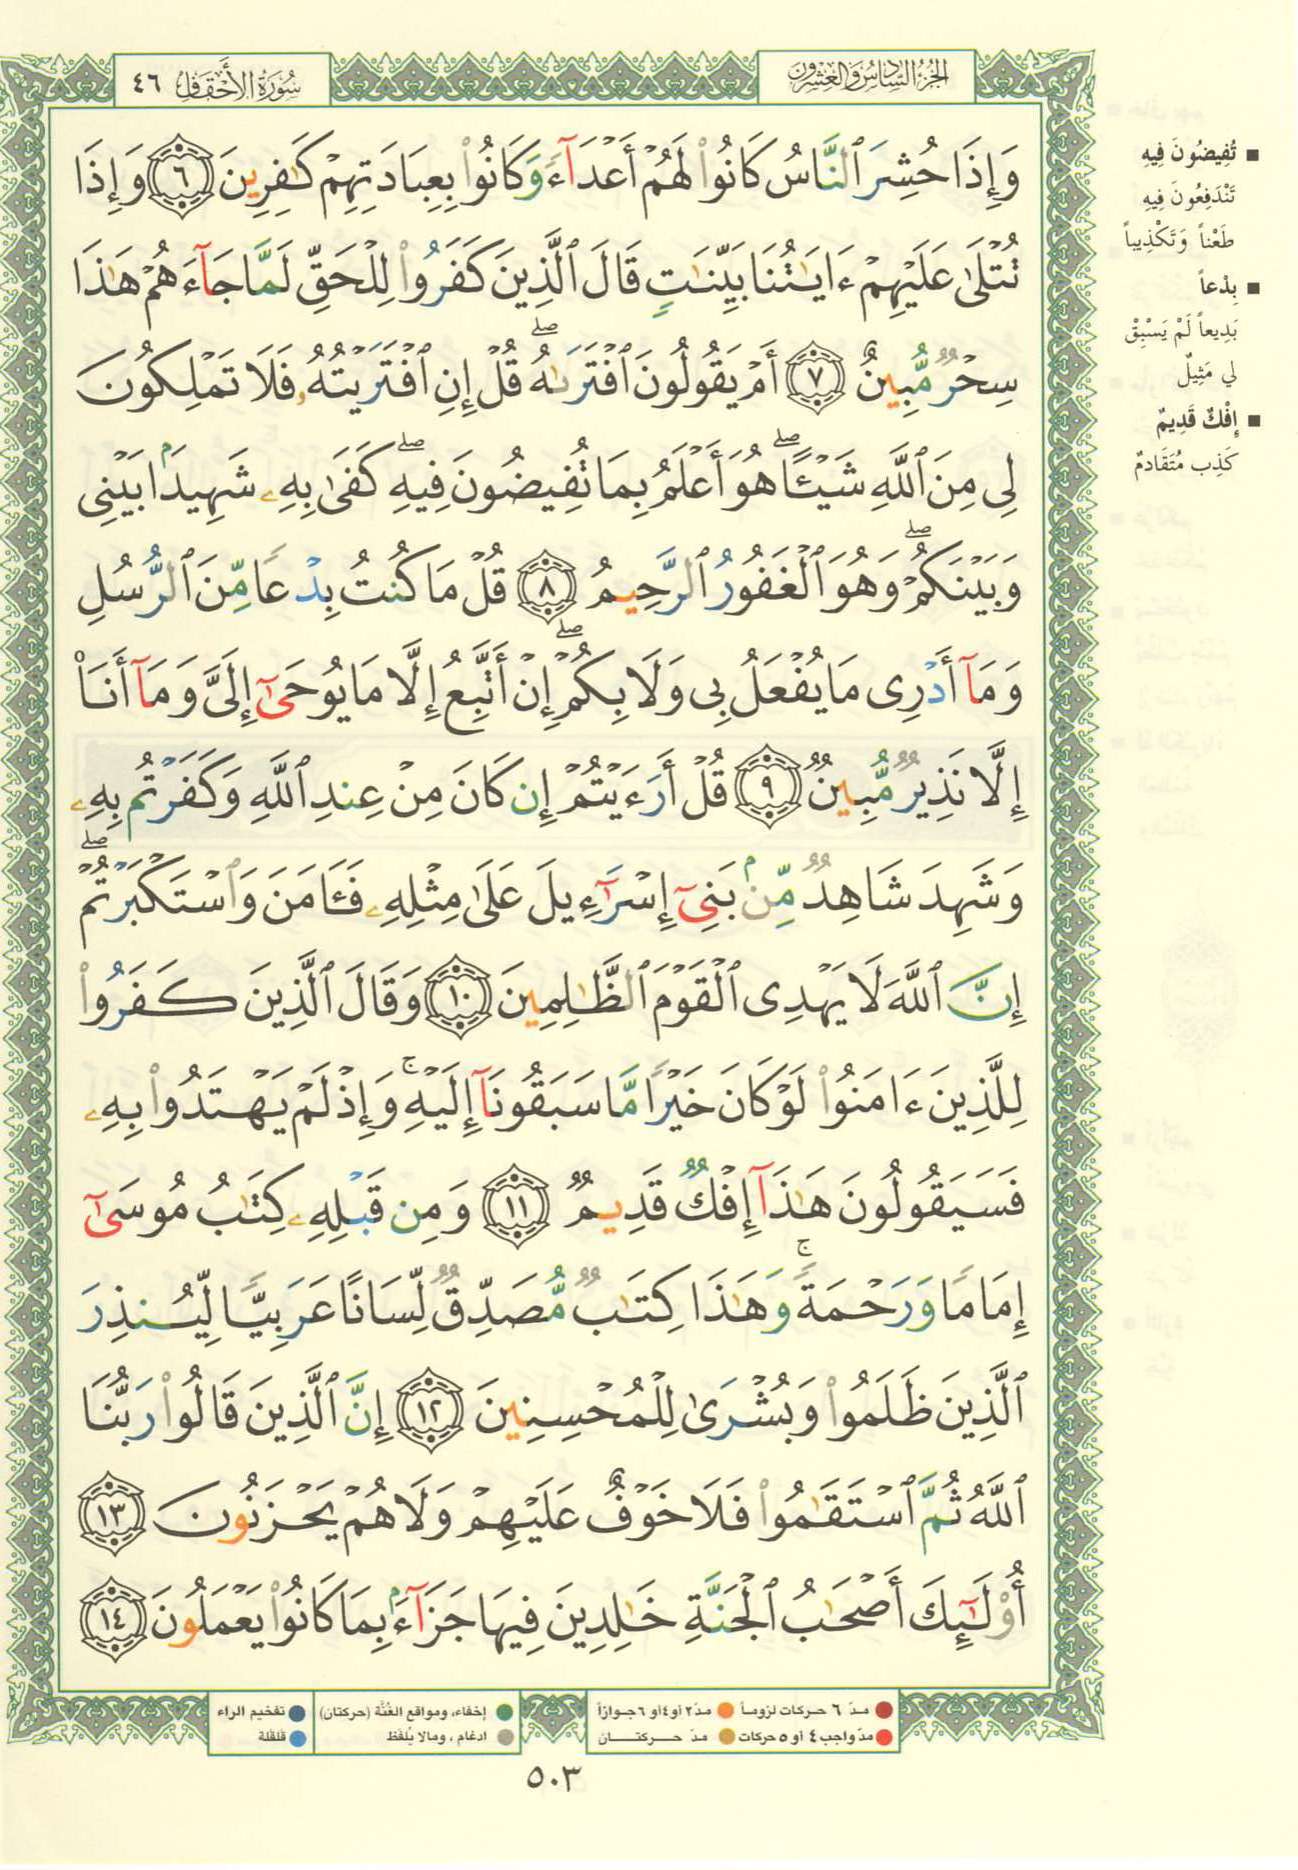 الجزء السادس والعشرون
سورة الأحقاف ٤٦
وَإِذَا حُشِرَ ٱلنَّاسُ كَانُوا۟ لَهُمْ أَعْدَآءً وَكَانُوا۟ بِعِبَادَتِهِمْ كَـٰفِرِينَ ٦ وَإِذَا
تُتْلَىٰ عَلَيْهِمْ ءَايَـٰتُنَا بَيِّنَـٰتٍ قَالَ ٱلَّذِينَ كَفَرُوا۟ لِلْحَقِّ لَمَّا جَآءَهُمْ هَـٰذَا
سِحْرٌ مُّبِينٌ ٧ أَمْ يَقُولُونَ ٱفْتَرَىٰهُ ۖ قُلْ إِنِ ٱفْتَرَيْتُهُۥ فَلَا تَمْلِكُونَ
لِى مِنَ ٱللَّهِ شَيْـًٔا ۖ هُوَ أَعْلَمُ بِمَا تُفِيضُونَ فِيهِ ۖ كَفَىٰ بِهِۦ شَهِيدًۢا بَيْنِى
وَبَيْنَكُمْ ۖ وَهُوَ ٱلْغَفُورُ ٱلرَّحِيمُ ٨ قُلْ مَا كُنتُ بِدْعًا مِّنَ ٱلرُّسُلِ
وَمَآ أَدْرِى مَا يُفْعَلُ بِى وَلَا بِكُمْ ۖ إِنْ أَتَّبِعُ إِلَّا مَا يُوحَىٰٓ إِلَىَّ وَمَآ أَنَا۠
إِلَّا نَذِيرٌ مُّبِينٌ ٩ قُلْ أَرَءَيْتُمْ إِن كَانَ مِنْ عِندِ ٱللَّهِ وَكَفَرْتُم بِهِۦ
وَشَهِدَ شَاهِدٌ مِّنۢ بَنِىٓ إِسْرَٰٓءِيلَ عَلَىٰ مِثْلِهِۦ فَـَٔامَنَ وَٱسْتَكْبَرْتُمْ ۖ
إِنَّ ٱللَّهَ لَا يَهْدِى ٱلْقَوْمَ ٱلظَّـٰلِمِينَ ١٠ وَقَالَ ٱلَّذِينَ كَفَرُوا۟
لِلَّذِينَ ءَامَنُوا۟ لَوْ كَانَ خَيْرًا مَّا سَبَقُونَآ إِلَيْهِ ۚ وَإِذْ لَمْ يَهْتَدُوا۟ بِهِۦ
فَسَيَقُولُونَ هَـٰذَآ إِفْكٌ قَدِيمٌ ١١ وَمِن قَبْلِهِۦ كِتَـٰبُ مُوسَىٰٓ
إِمَامًا وَرَحْمَةً ۚ وَهَـٰذَا كِتَـٰبٌ مُّصَدِّقٌ لِّسَانًا عَرَبِيًّا لِّيُنذِرَ
ٱلَّذِينَ ظَلَمُوا۟ وَبُشْرَىٰ لِلْمُحْسِنِينَ ١٢ إِنَّ ٱلَّذِينَ قَالُوا۟ رَبُّنَا
ٱللَّهُ ثُمَّ ٱسْتَقَـٰمُوا۟ فَلَا خَوْفٌ عَلَيْهِمْ وَلَا هُمْ يَحْزَنُونَ ١٣
أُو۟لَـٰٓئِكَ أَصْحَـٰبُ ٱلْجَنَّةِ خَـٰلِدِينَ فِيهَا جَزَآءًۢ بِمَا كَانُوا۟ يَعْمَلُونَ ١٤
■ تُفِيضُونَ فِيهِ
تَنْدَفِعُونَ فِيهِ
طَعْناً وَتَكْذِيباً
■ بِدْعاً
بَدِيعاً لَمْ يَسْبِقْ
لي مَثِيلٌ
■ إِفْكٌ قَدِيمٌ
كَذِب مُتَقَادِمٌ
مدّ ٦ حركات لزوماً مدّ ٢ أو ٤ أو ٦ جوازاً
مدّ واجب ٤ أو ٥ حركات مدّ حركتان
إخفاء، ومواقع الغُنَّة (حركتان)
ادغام، ومالا يُلفَظ
تفخيم الراء
قلقلة
٥٠٣